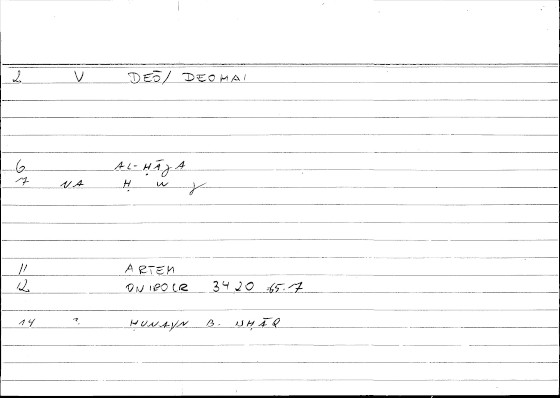 2 V DEŌ/ DEOMAI
6 AL-ḤĀǦA
7 NA Ḥ W Ǧ
11 ARTEM
12 ONIPOCR 3420 65.7
14 ?. ḤUNAYN B. ISḤĀQ